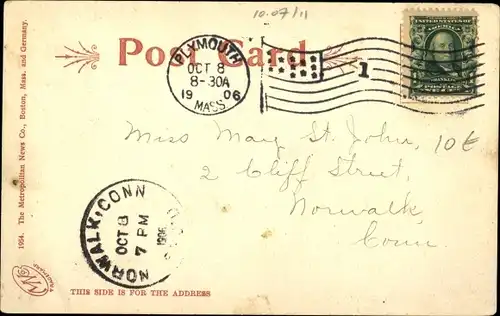 10.07/11
Post Card
PLYMOUTH
OCT 8
8-30A
1906
MASS.
1
UNITED STATES OF
FRANKLIN
POSTAGE
Miss Mary St. John, 10¢
2 Cliff Street,
Norwalk,
Conn.
NORWALK, CONN
OCT 8
7 PM
1906
1054. The Metropolitan News Co., Boston, Mass. and Germany.
THIS SIDE IS FOR THE ADDRESS